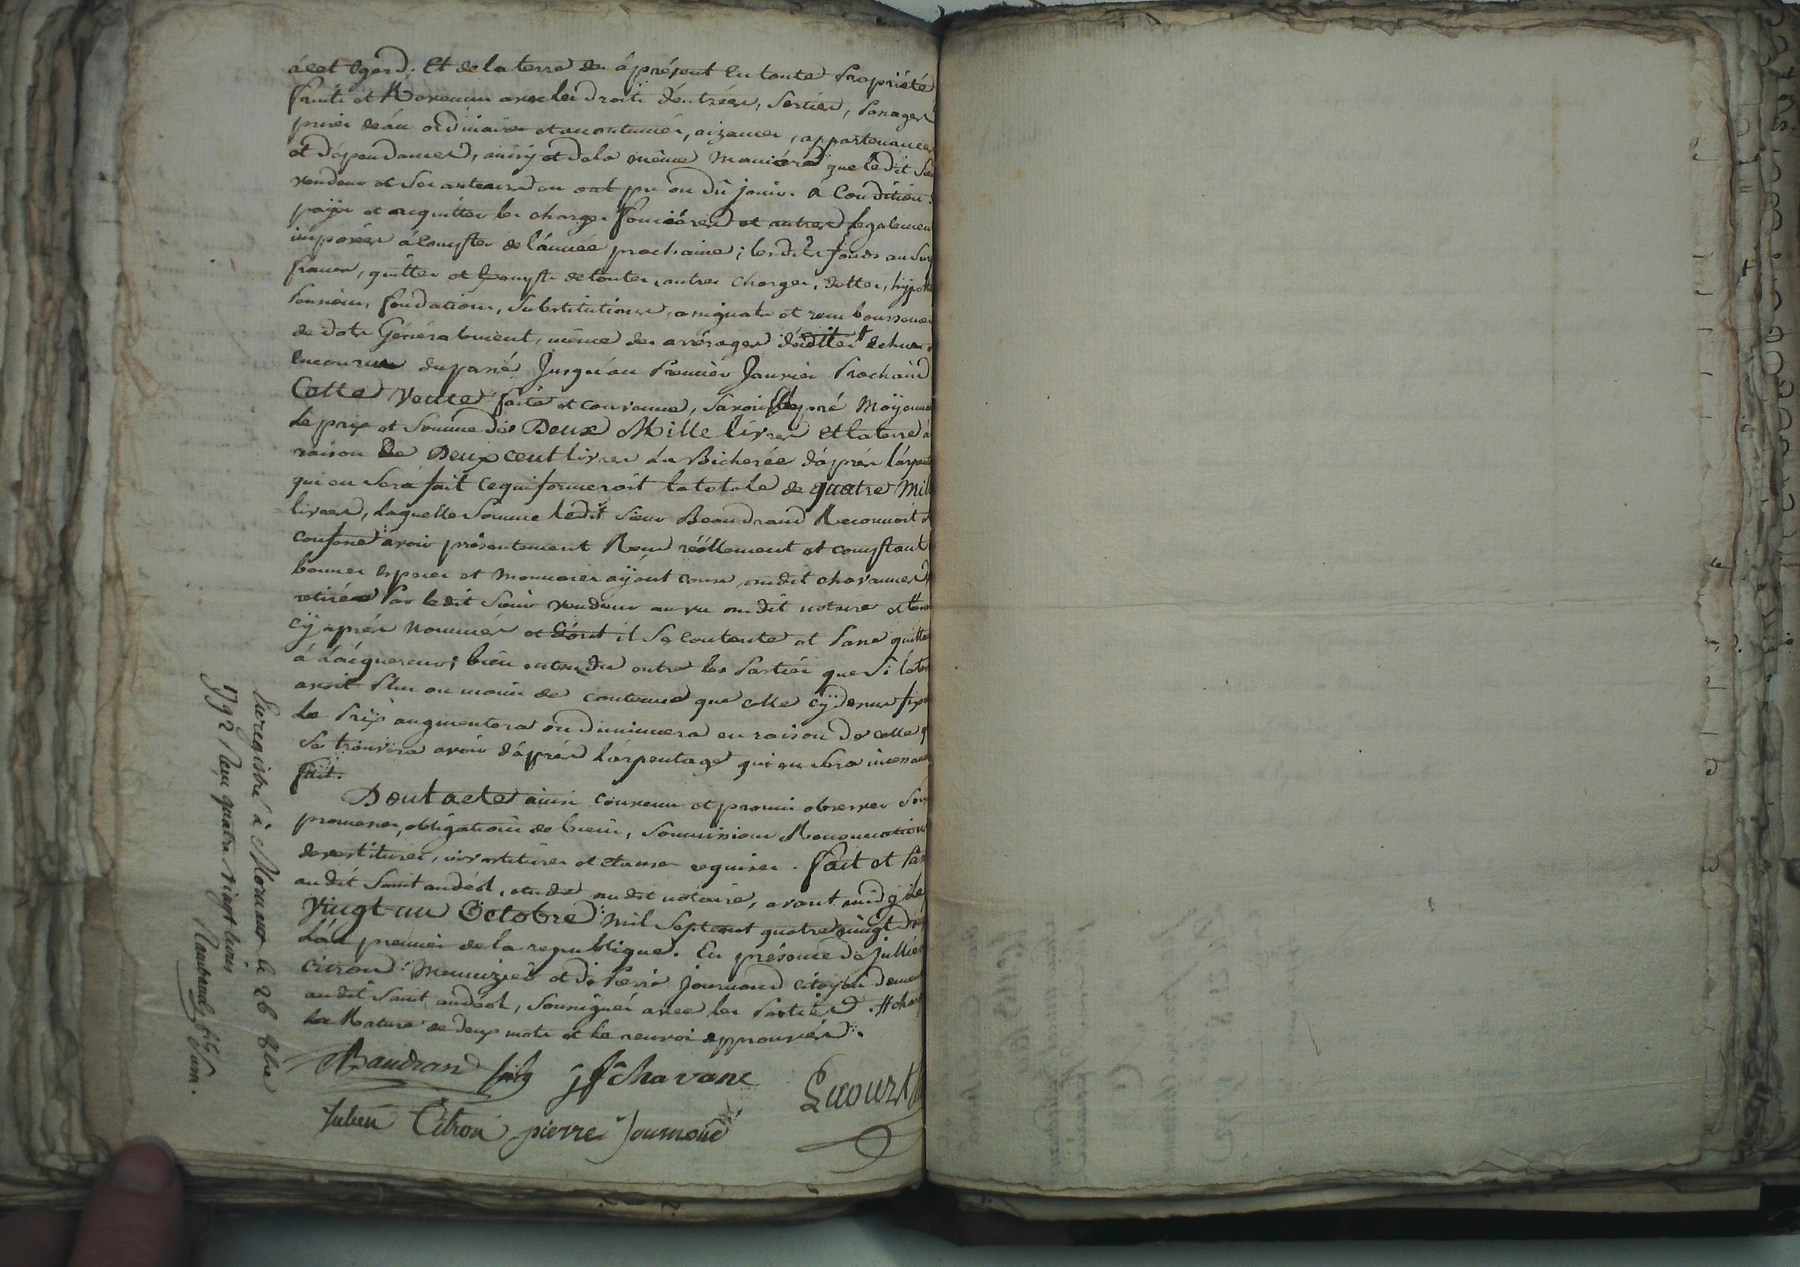 à cet Egard, Et de la terre dès àprésent En toute Propriété
fruits et Revenus avec les droits d'entrées, Sorties, Passages
prises d'eau ordinaires et accoutumés, aizances, appartenances
et dépendances, ainsy et de la même manière que ledit Sr
vendeur et Ses auteurs en ont pu ou dû jouir. à Condition
payer et acquitter les charges foncières et autres légalemen
imposées à Compter de l'année prochaine; lesdits fonds au Sur
francs, quittes et Exempts de toutes autres charges, dettes, hypot
Pensions, fondations, Substitutions, assignats et remboursemen
de dots Généralement, même des arrérages
encourus du passé Jusqu'au Premier Janvier Prochain
Cette Vente faite et convenue, Savoir le pré Moÿenna
Le prix et Somme de Deux Mille livres Et la terre à
raison de Deux cent livres la Bicherée d'après l'arpent
qui en Sera fait ce qui formeroit la totale de quatre Mil
livres, laquelle Somme ledit Sieur Beaudrand Reconnoit et
confesse avoir présentement Reçu réellement et comptant
bonnes Espèces et monnoies aÿant cours dudit chavannes
retirée Par ledit Sieur vendeur au vu dudit notaire et tém
cy après nommés et dont il Se contente et Passe quitta
à l'acquereur; bien entendu entre les Parties que Si la ter
avoit Plus ou moins de contenue que celle cy dessus fix
Le Prix augmentera ou diminuera en raison de celle q
Se trouvera avoir d'après l'arpentage qui en Sera incessam
fait.
Dont acte ainsi convenu et promis observer Sous
promesses, obligations de biens, Soumissions Renonciations
devestitures, investitures et clauses requises. Fait et Pas
audit Saint andéol, étude dudit notaire, avant midy Le
Vingt un Octobre mil Sept cent quatre vingt dou
L'an premier de la republique. En présence de Jullien
Citron Menuizier et de Pierre Journoud citoyen demeu
audit Saint andéol, Soussignés avec les Parties.
La Rature de deux mots et le renvoi approuvés.
Baudran
jf chavane
Lucourt
Julien Citron pierre Journoud
Enregistré à Mornant le 26 8bre
1792 Reçu quatre vingt livres
Rambaud